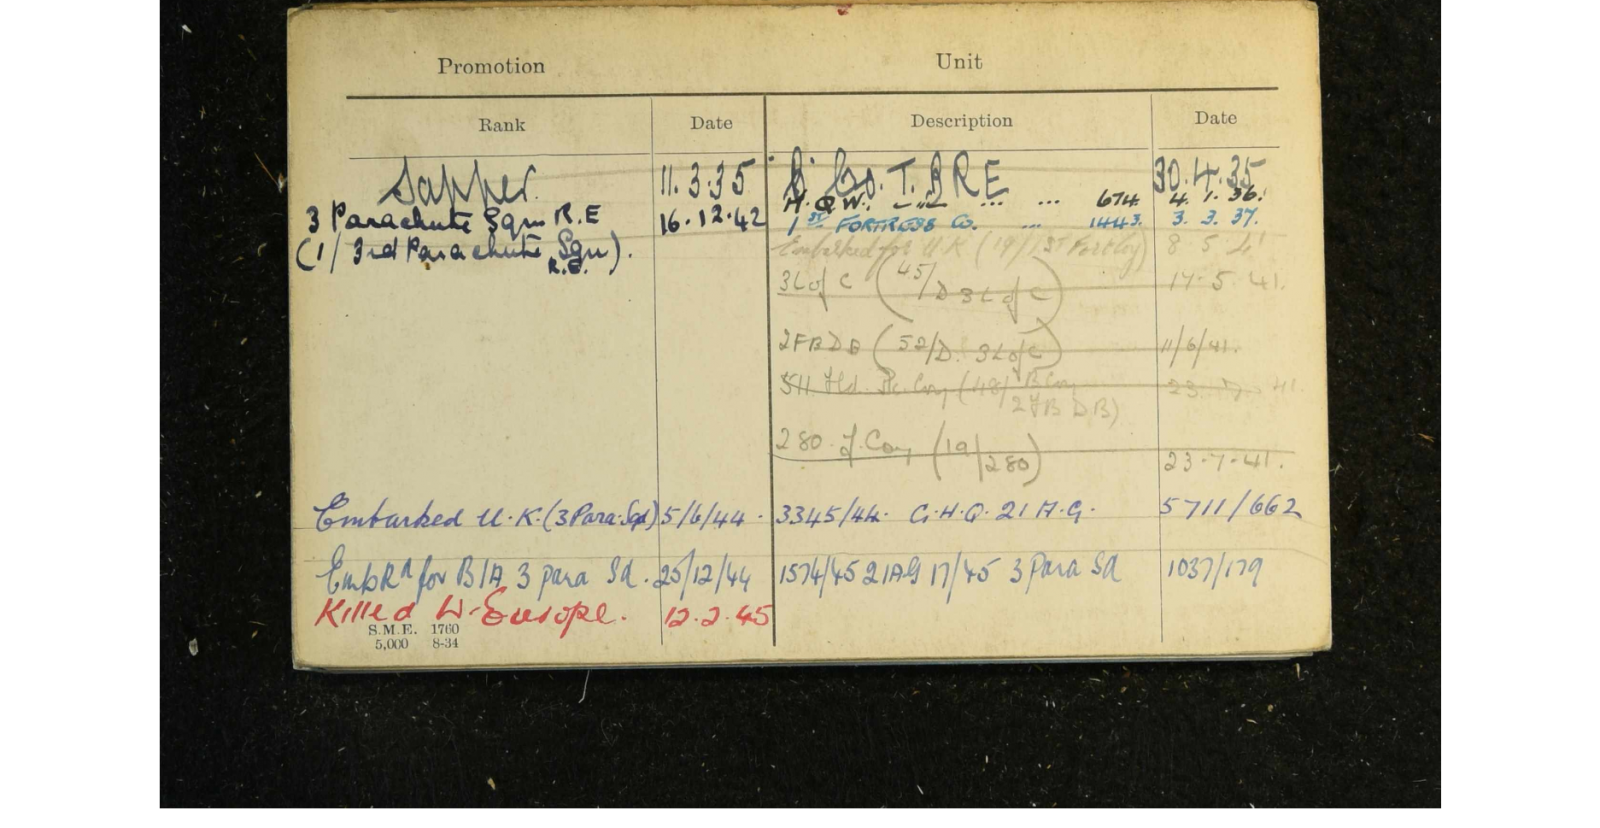 Promotion Unit
Rank Date Description Date
Sapper. 11.3.35 B. Co. T.B.R.E 30.4.35
H.Q.W. ... ... 674 4.1.36.
3 Parachute Sqn R.E 16.12.42 1ST FORTRESS Co. ... 1443. 3.3.37.
(1/3rd Parachute Sqn). Embarked for U.K (19/1ST Fort Coy) 8 5 41
R.E.
3 L of C (45/D 3 L of C) 17.5.41.
2FBDE (52/D. 3 L of C) 11/6/41.
511 Fld. Pk. Coy (48/B Coy 23 7 41
2 FB DB)
280 F. Coy (19/280) 23-7-41.
Embarked U.K. (3 Para. Sqd) 5/6/44. 3345/44. G.H.Q. 21 A.G. 5711/662
EmbRd for B/A 3 para Sd. 25/12/44 1574/45 21AG 17/45 3 Para Sd 1037/179
Killed W-Europe. 12.2.45
S.M.E. 1760
5,000 8-34